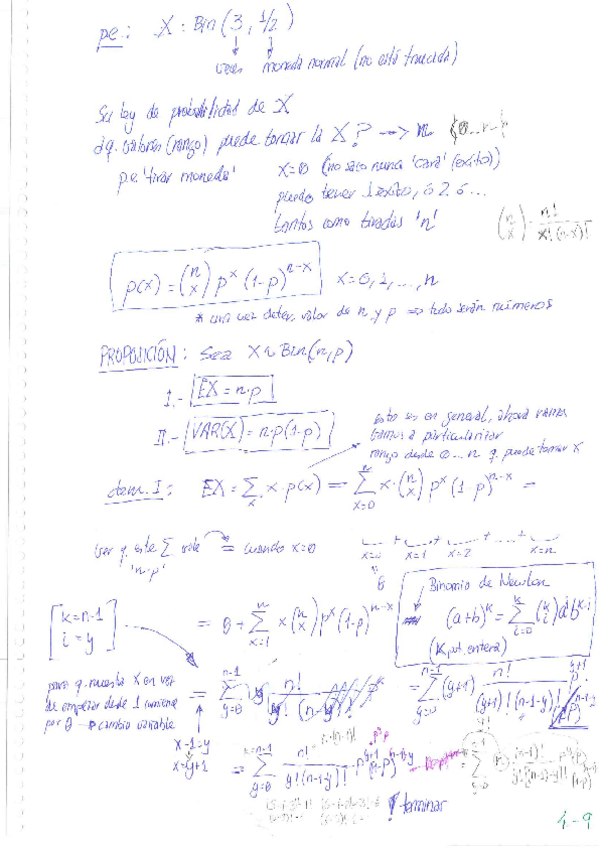 p.e.: X : Bin(3, 1/2)
veces moneda normal (no está trucada)
Su ley de probabilidad de X
d q. valores (rango) puede tomar la X? --> n. {0...n
p.e. 'tirar moneda' X=0 (no saco nunca 'cara' (éxito))
puedo tener 1 éxito, ó 2, ó ...
tantos como tiradas 'n'
(n x) = n! / x!(n-x)!
p(x) = (n x) p^x (1-p)^{n-x} x=0,1,...,n
* una vez deter. valor de n y p => todo serán números
PROPOSICIÓN: Sea X ~ Bin(n,p)
I.- EX = n·p
II.- VAR(X) = n·p(1-p)
esto es en general, ahora vamos
a particularizar
rango desde 0...n q. puede tomar X
dem. I: EX = Σ_x x·p(x) = Σ_{x=0}^{n} x·(n x) p^x (1-p)^{n-x} =
ver q. este Σ vale = cuando x=0
'n·p'
x=0 + x=1 + x=2 + ... + x=n
0
Binomio de Newton
(a+b)^k = Σ_{i=0}^{k} (k i) a^i b^{k-i}
(K nt. entera)
[k=n-1
i=y]
= 0 + Σ_{x=1}^{n} x (n x) p^x (1-p)^{n-x}
para q. nuestra X en vez
de empezar desde 1 comience
por 0 → cambio variable
x-1=y
x=y+1
= Σ_{y=0}^{n-1} n! / y! (n-y)!
= Σ_{y=0}^{n-1} (y+1) n! / (y+1)! (n-1-y)! p^{y+1}
= Σ_{y=0}^{n-1} n! / y!(n-1-y)! · p^{y+1} (1-p)^{n-1-y}
! terminar
4-9